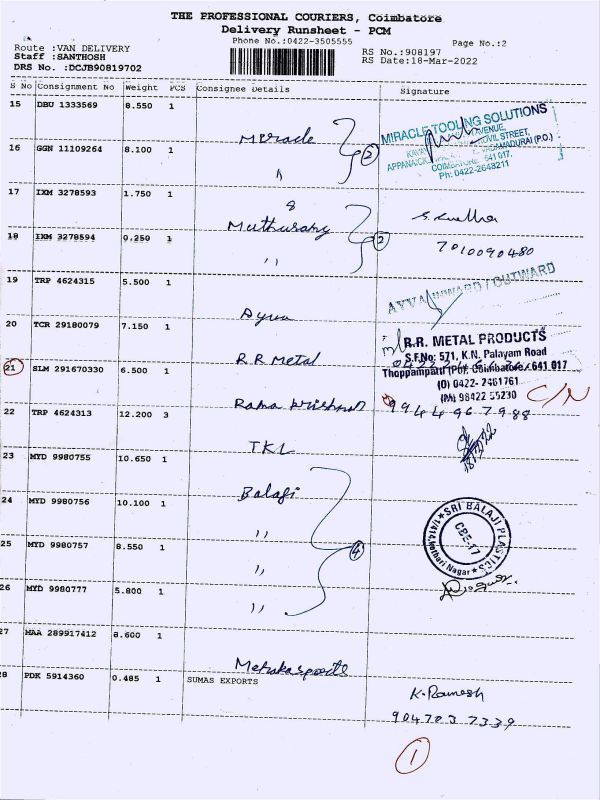 THE PROFESSIONAL COURIERS, Coimbatore
Delivery Runsheet - PCM
Phone No.:0422-3505555
Page No.:2
Route :VAN DELIVERY
Staff :SANTHOSH
DRS No. :DCJB90819702
RS No.:908197
RS Date:18-Mar-2022
S No Consignment No Weight PCS Consignee Details Signature
15 DBU 1333569 8.550 1
Miracle 2
MIRACLE TOOLING SOLUTIONS
AVENUE,
COVIL STREET,
COIMBATORE 641 017.
Ph: 0422-2648211
16 GGN 11109264 8.100 1
"
17 IXM 3278593 1.750 1
&
Muthusamy 2
18 IXM 3278594 0.250 1
"
7010090480
19 TRP 4624315 5.500 1
AYVA INWARD / OUTWARD
Ayva
20 TCR 29180079 7.150 1
R.R Metal
R.R. METAL PRODUCTS
S.F.No: 571, K.N. Palayam Road
Thoppampatti (PO), Coimbatore - 641 017
(O) 0422- 2461761
(PH) 98422 55230
21 SLM 291670330 6.500 1
Rama Krishnan
9944967988
C/N
22 TRP 4624313 12.200 3
TKL
18/3/22
23 MYD 9980755 10.650 1
Balaji
24 MYD 9980756 10.100 1
"
4
SRI BALAJI PLASTICS
1/414, Kothari Nagar
CBE-17
25 MYD 9980757 8.550 1
"
26 MYD 9980777 5.800 1
"
27 MAA 289917412 8.600 1
28 PDK 5914360 0.485 1 SUMAS EXPORTS
K. Ramesh
904703 7339
1